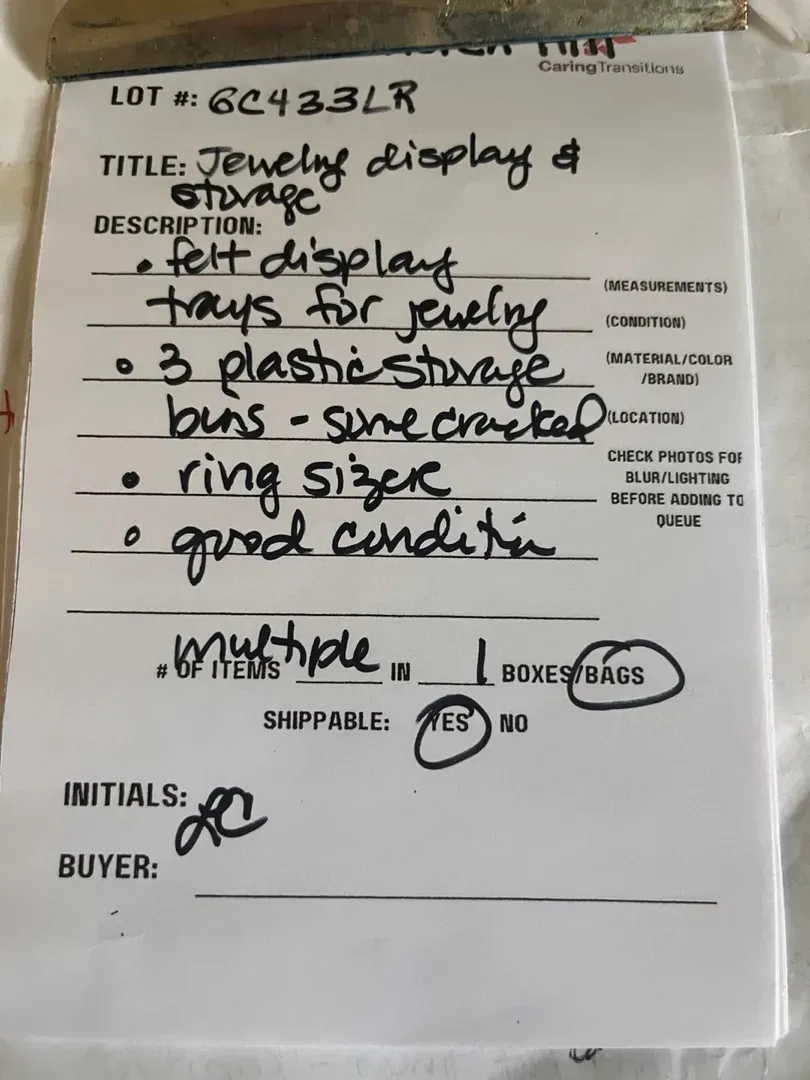 CaringTransitions
LOT #: 6C433LR
TITLE: Jewelry display &
storage
DESCRIPTION:
• felt display
(MEASUREMENTS)
trays for jewelry
(CONDITION)
• 3 plastic storage
(MATERIAL/COLOR
/BRAND)
bins - some cracked
(LOCATION)
CHECK PHOTOS FOR
BLUR/LIGHTING
BEFORE ADDING TO
QUEUE
• ring sizer
• good condition
# OF ITEMS multiple IN 1 BOXES/BAGS
SHIPPABLE: YES NO
INITIALS: LC
BUYER: